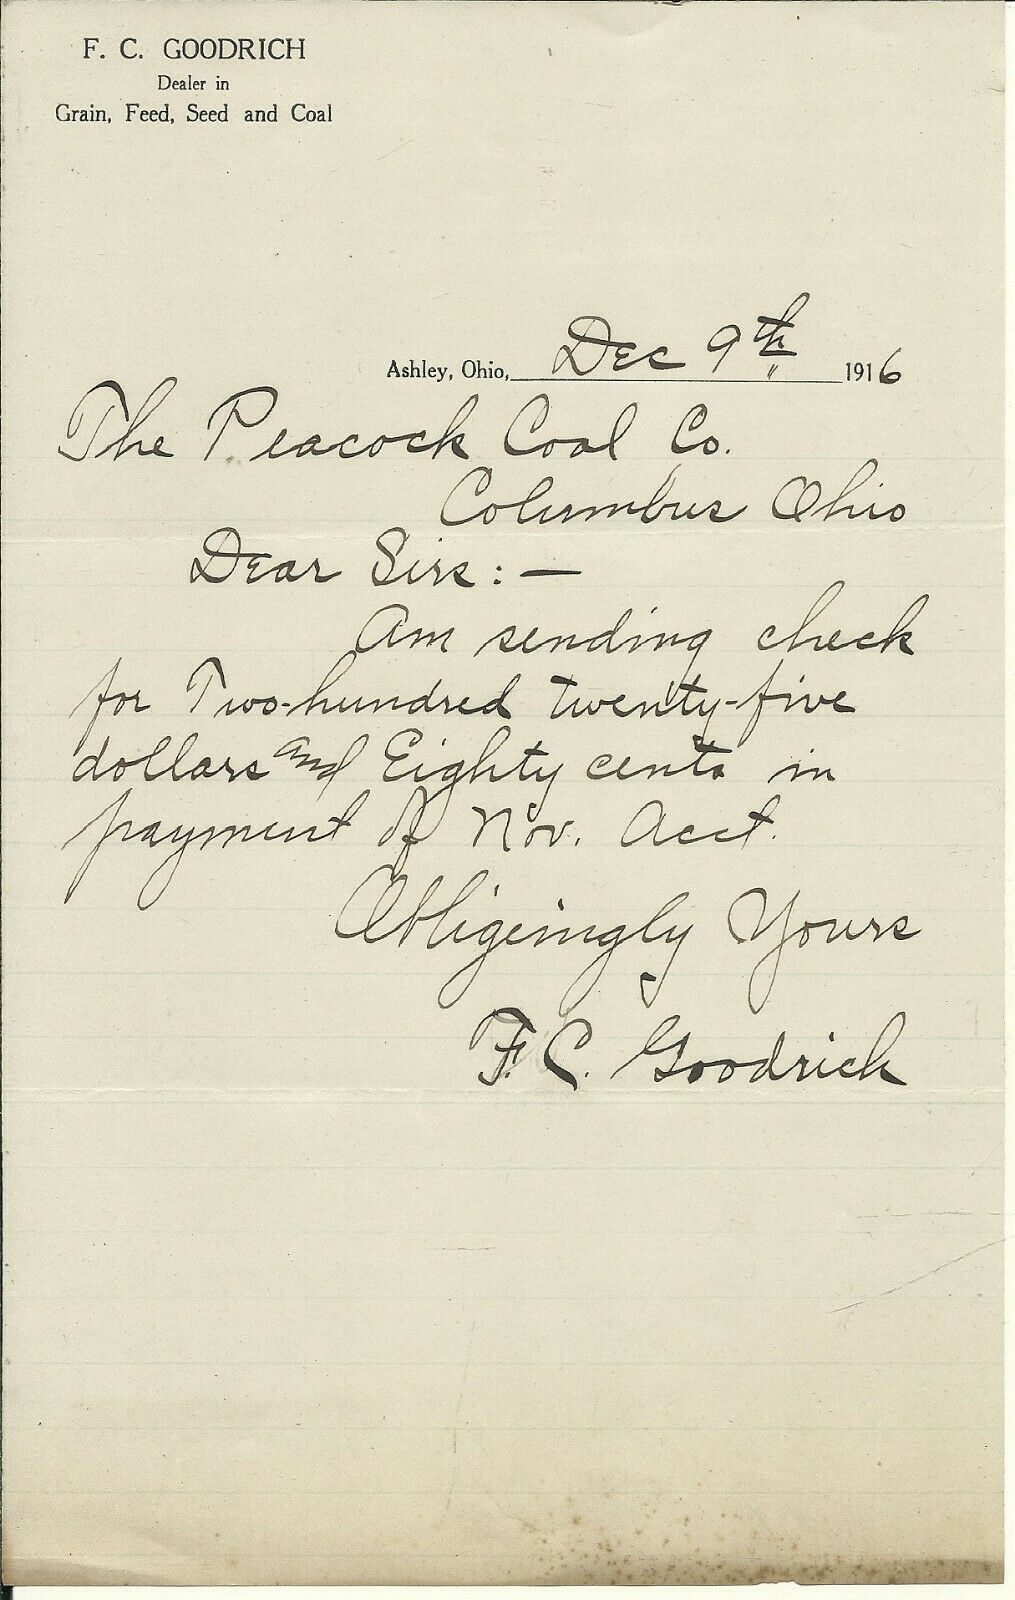 F. C. GOODRICH
Dealer in
Grain, Feed, Seed and Coal
Ashley, Ohio, Dec 9th 1916
The Peacock Coal Co.
Columbus Ohio
Dear Sirs: —
Am sending check
for Two-hundred twenty-five
dollars and Eighty cents in
payment of Nov. Acct.
Obligeingly Yours
F. C. Goodrich